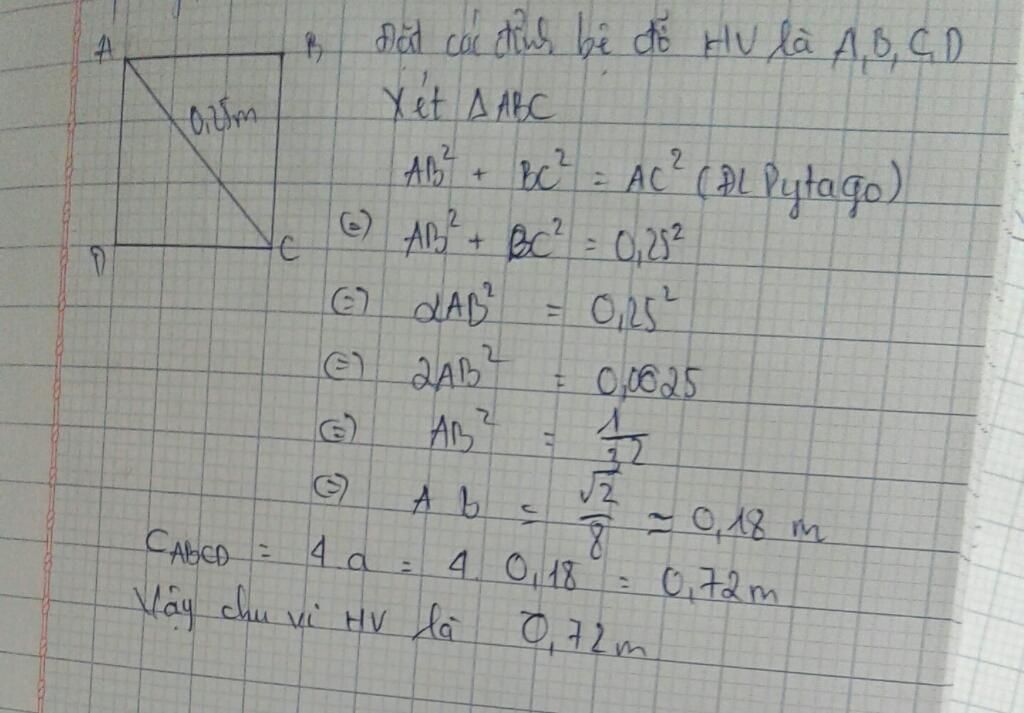 A
B
0,25m
D
C
Đặt các đỉnh bệ đỗ HV là A, B, C, D
Xét Δ ABC
AB² + BC² = AC² (ĐL Pytago)
(=) AB² + BC² = 0,25²
(=) 2AB² = 0,25²
(=) 2AB² = 0,0625
(=) AB² = 1/32
(=) Ab = √2/8 ≈ 0,18 m
C_ABCD = 4.a = 4. 0,18 = 0,72m
Vậy chu vi HV là 0,72m